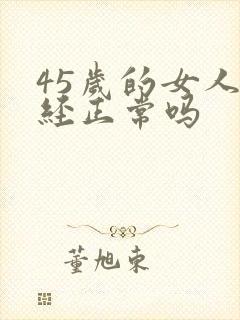 45歲的女人
經正常吗
董旭東